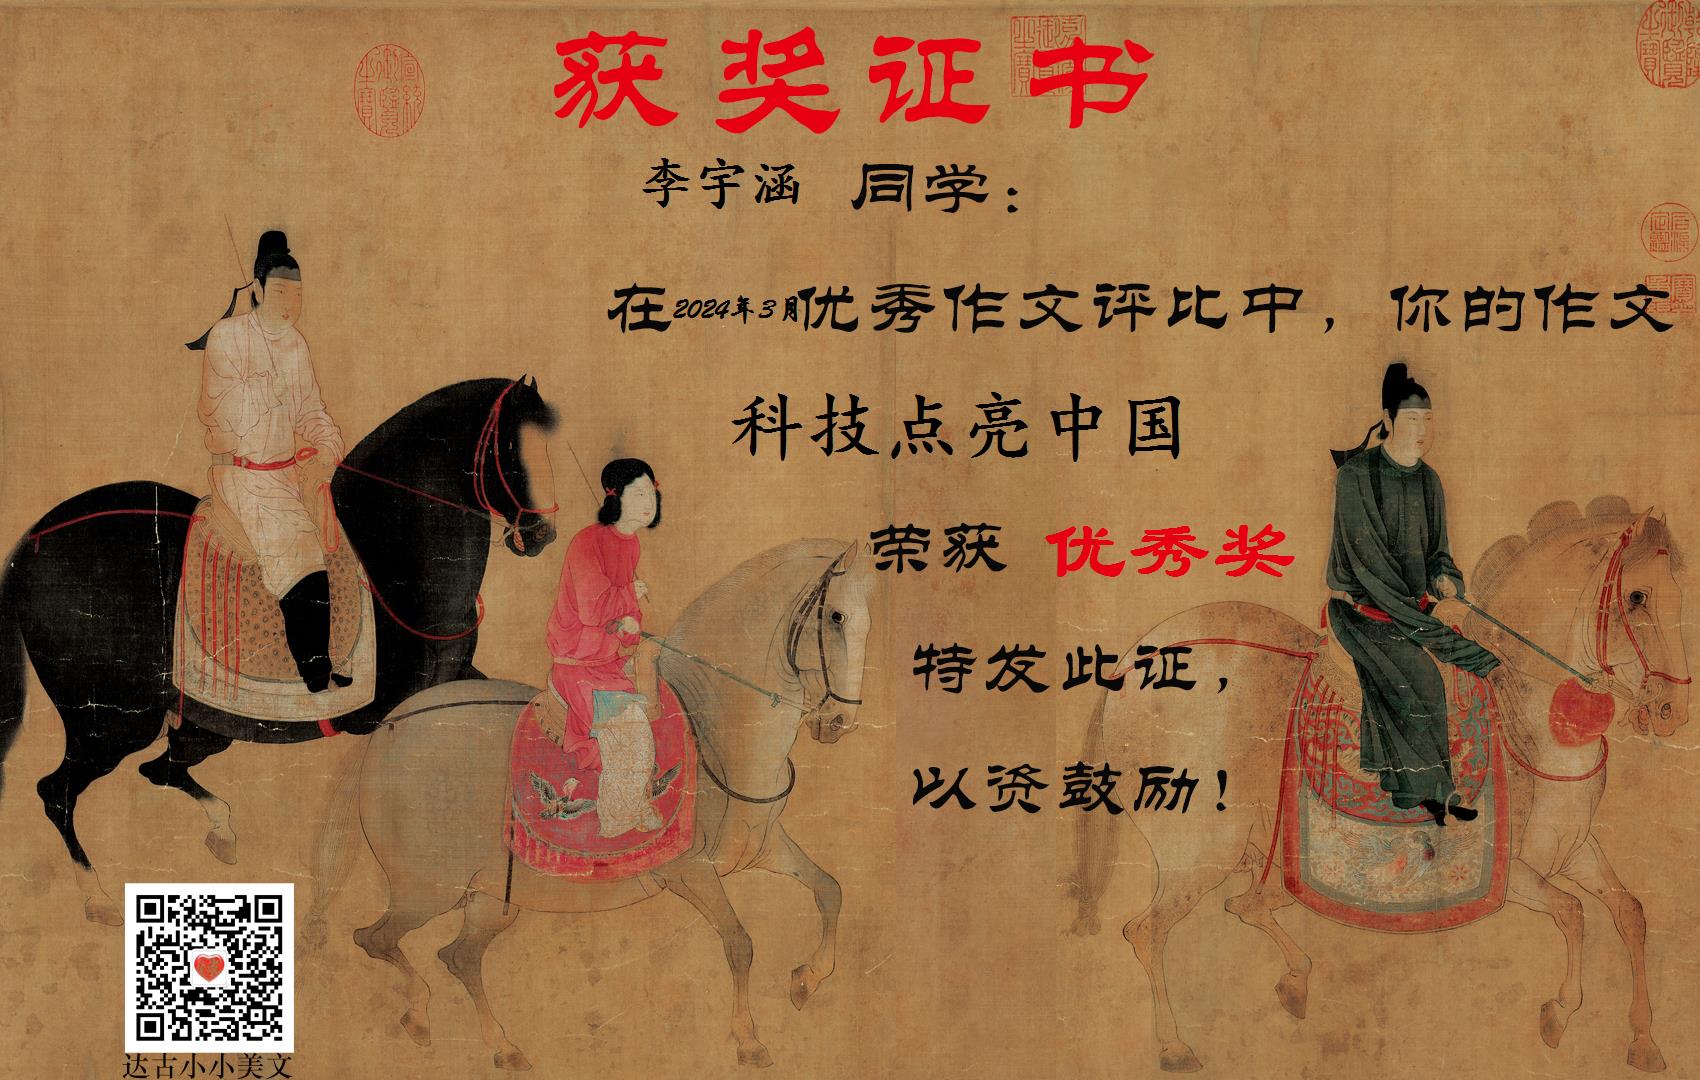 获奖证书
李宇涵 同学：
在2024年3月优秀作文评比中，你的作文
科技点亮中国
荣获 优秀奖
特发此证，
以资鼓励！
达古小小美文